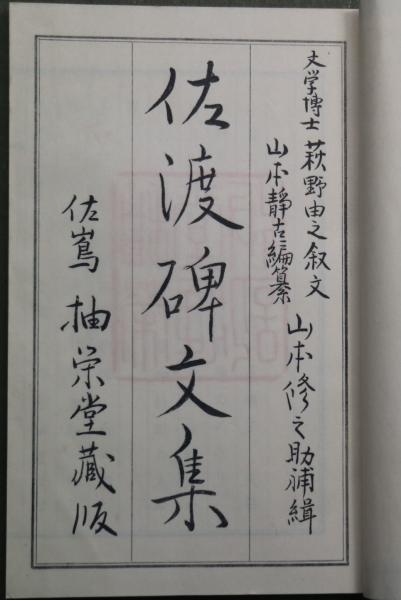 文学博士 萩野由之叙文
山本静古編纂 山本修之助補緝
佐渡碑文集
佐嶌 柚栄堂蔵版